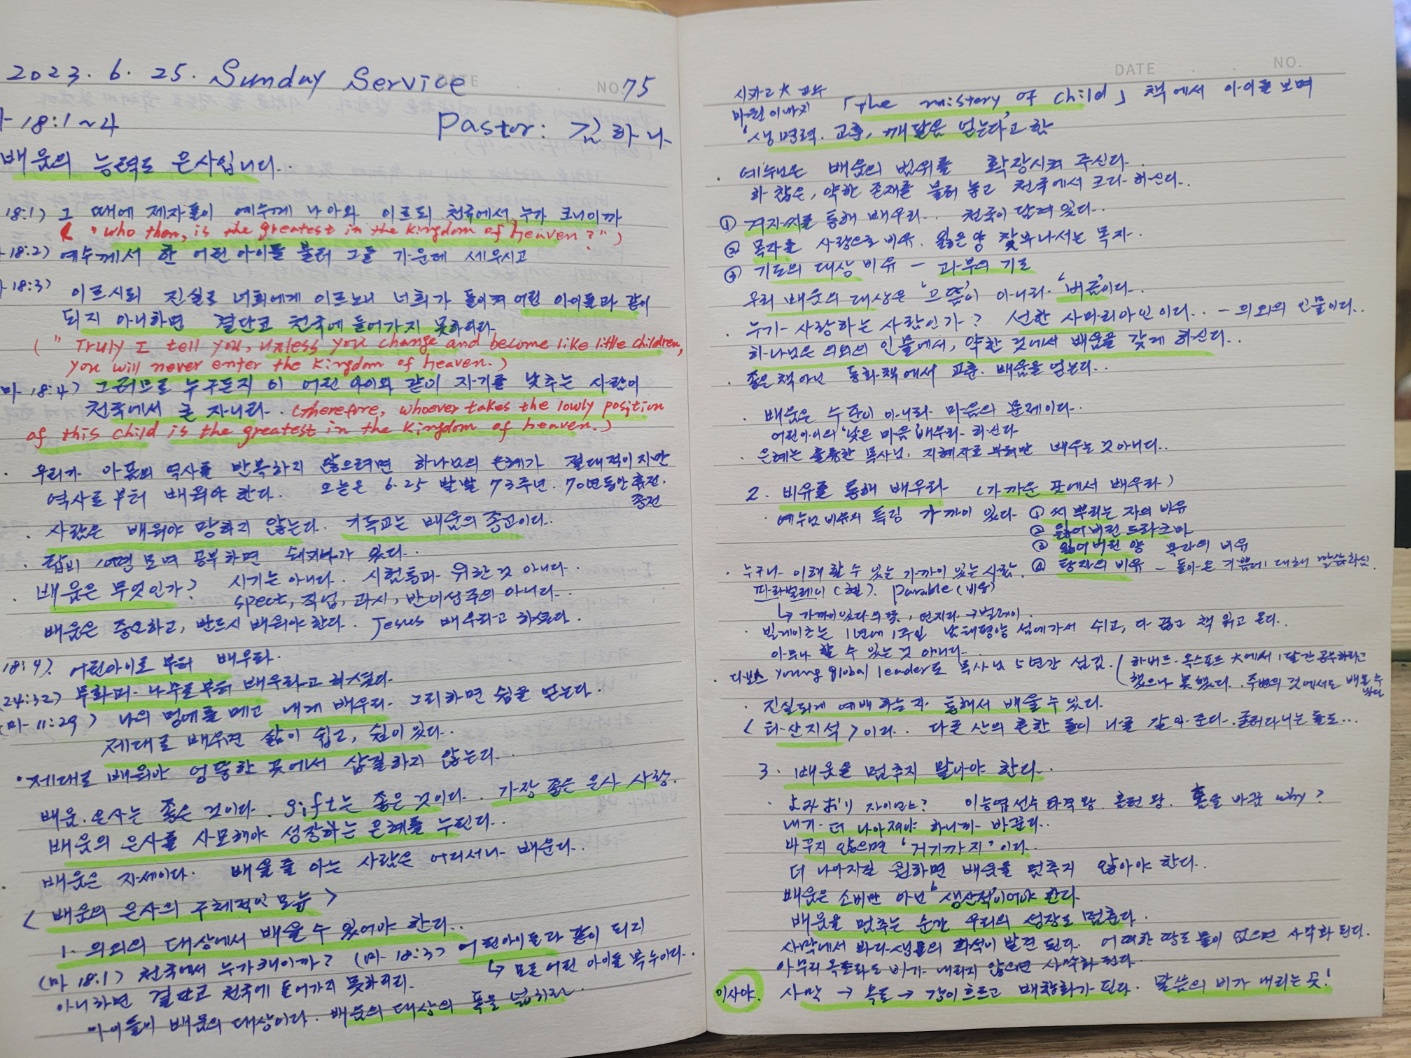 2023. 6. 25. Sunday Service 75
18:1~4 Pastor: 김하나
배움의 능력도 은사입니다..
18:1) 그 때에 제자들이 예수께 나아와 이르되 천국에서 누가 크니이까
("Who then, is the greatest in the kingdom of heaven?")
18:2) 예수께서 한 어린 아이를 불러 그들 가운데 세우시고
18:3) 이르시되 진실로 너희에게 이르노니 너희가 돌이켜 어린 아이들과 같이
되지 아니하면 결단코 천국에 들어가지 못하리라.
("Truly I tell you, unless you change and become like little children,
you will never enter the kingdom of heaven.)
마 18:4) 그러므로 누구든지 이 어린 아이와 같이 자기를 낮추는 사람이
천국에서 큰 자니라. (Therefore, whoever takes the lowly position
of this child is the greatest in the kingdom of heaven.)
· 우리가 아픔의 역사를 반복하지 않으려면 하나님의 은혜가 절대적이지만
역사로부터 배워야 한다. 오늘은 6.25 발발 73주년. 70년동안 휴전.
종전
· 사람은 배워야 망하지 않는다. 기독교는 배움의 종교이다..
어떤 모며 공부하면 있다..
· 배움은 무엇인가? 시기는 아니다. 시험통과 위한것 아니다..
spect, 직업, 과시, 반이성주의 아니다..
배움은 중요하고, 반드시 배워야 한다. Jesus 배우라고 하셨다.
18:4) 어린아이로 부터 배우라.
24:32) 무화과 나무로부터 배우라고 하셨다.
(마 11:29) 나의 멍에를 메고 내게 배우라. 그리하면 쉼을 얻는다.
제대로 배우면 삶이 쉽고, 쉼이 있다..
· 제대로 배워야 엉뚱한 곳에서 삽질하지 않는다..
배움. 은사는 좋은 것이다. gift는 좋은 것이다. 가장 좋은 은사 사랑.
배움의 은사를 사모해야 성장하는 은혜를 누린다..
· 배움은 자세이다. 배울줄 아는 사람은 어디서나 배운다..
< 배움의 은사의 구체적인 모습 >
1. 의외의 대상에서 배울 수 있어야 한다..
(마 18:1) 천국에서 누가 크니이까? (마 18:3) 어린아이들과 같이 되지
아니하면 결단코 천국에 들어가지 못하리라. ↳ 모든 어린 아이들 복수이다..
아이들이 배움의 대상이다. 배움의 대상의 폭을 넓히라.
DATE . . NO.
시카고大 교수
「The mistory of child」 책에서 아이를 보며
'생명력. 교훈, 깨달음 얻는다'고 함
· 예수님은 배움의 범위를 확장시켜 주신다.
하찮은, 약한 존재를 불러 놓고 천국에서 크다 하신다..
① 겨자씨를 통해 배우라.. 천국이 담겨 있다..
② 목자를 사랑으로 비유. 잃은양 찾아나서는 목자.
③ 기도의 대상 비유 - 과부의 기도
우리 배움의 대상은 '그들'이 아니라. '바로'이다..
· 누가 사랑하는 사람인가? 선한 사마리아인이다.. - 의외의 인물이다..
하나님은 의외의 인물에서, 약한 것에서 배움을 갖게 하신다..
· 좋은 책 아닌 동화책에서 교훈. 배움을 얻는다..
· 배움은 수준이 아니라 마음의 문제이다..
어린아이의 '낮은 마음' 배우라 하신다
· 은혜는 훌륭한 목사님, 지혜자로 부터만 배우는 것 아니다..
2. 비유를 통해 배우라 (가까운 곳에서 배우라)
· 예수님 비유의 특징 가까이 있다 ① 씨 뿌리는 자의 비유
② 잃어버린 드라크마
③ 잃어버린 양 목자의 비유
④ 탕자의 비유 - 돌아온 기쁨에 대해 말씀하심.
· 누구나 이해할 수 있는 가까이 있는 사람.
파라발레이 (헬). Parable (비유)
↳ 가까이 있다의 뜻, 던지다 →
· 빌게이츠는 1년에 1주일 남태평양 섬에가서 쉬고, 다 끊고 책 읽고 온다..
아무나 할 수 있는 것 아니다.
· 다보스 Young global leader도 목사님 5년간 섬김. (하버드. 옥스포드 大에서 1달간 공부하라고
했으나 못했다. 주변의 것에서도 배울수
있다
· 진실되게 예배하는자 통해서 배울 수 있다.
<타산지석>이라.. 다른 산의 흔한 돌이 나를 갈아준다. 굴러다니는 돌도...
3. 배움을 멈추지 말아야 한다..
· 이승엽선수 타격왕 홈런왕. 폼을 바꾼 why?
내가 더 나아져야 하니까 바꾼다..
바꾸지 않으면 '거기까지'이다..
더 나아지길 원하면 배움을 멈추지 않아야 한다..
배움은 소비만 아닌 '생산적'이어야 한다.
배움을 멈추는 순간 우리의 성장도 멈춘다.
사막에서 바다생물의 화석이 발견된다. 어떠한 땅도 물이 없으면 사막화 된다.
아무리 옥토라도 비가 내리지 않으면 사막화 된다.
이사야. 사막 → 옥토 → 강이 흐르고 백향화가 핀다. 말씀의 비가 내리는 곳!